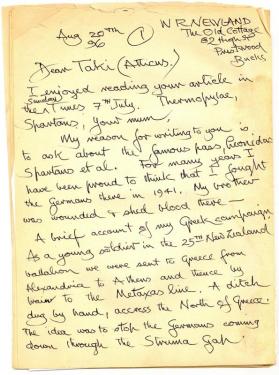 Aug 20th
96
①
W R NEWLAND
The Old Cottage
82 High St
Prestwood
Bucks
Dear Taki (Atticus.)
I enjoyed reading your article in
the Sunday Times 7th July. Thermopylae,
Spartans, your mum.
My reason for writing to you is
to ask about the famous pass, Leonidas
Spartans et al. For many years I
have been proud to think that I fought
the Germans there in 1941. My brother
was wounded & shed blood there –
A brief account of my Greek campaign
As a young soldier in the 25th New Zealand
battalion we were sent to Greece from
Alexandria to Athens and thence by
train to the Metaxas line. A ditch
dug by hand, accross the North of Greece.
The idea was to stop the Germans coming
down through the Struma Gap.